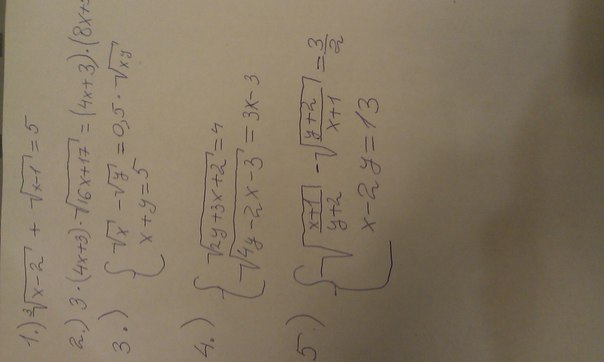 1.) ∛(x-2) + √(x-1) = 5
2.) 3·(4x+3)·√(16x+17) = (4x+3)·(8x+
3.) { √x - √y = 0,5·√(xy)
x+y=5
4.) { √(2y+3x+2) = 4
√(4y-2x-3) = 3x-3
5.) { √((x+1)/(y+2)) - √((y+2)/(x+1)) = 3/2
x-2y=13